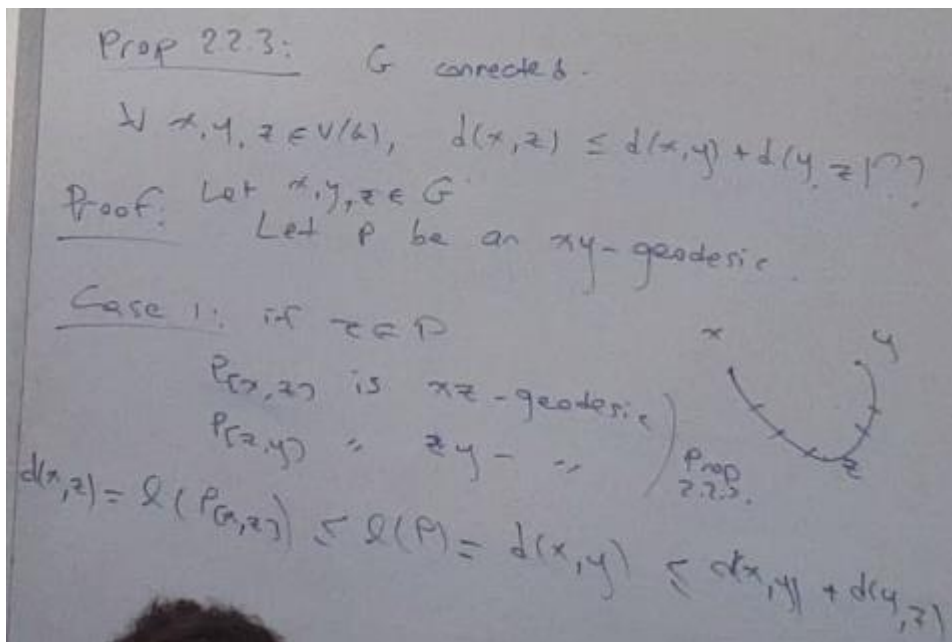 Prop 2.2.3: G connected.
∀ x, y, z ∈ V(G), d(x,z) ≤ d(x,y) + d(y,z) ??
Proof: Let x, y, z ∈ G
Let P be an xy-geodesic.
Case 1: if z ∈ P
P[x,z] is xz-geodesic
P[z,y] " zy- "
Prop
x
y
z
d(x,z) = l(P[x,z]) ≤ l(P) = d(x,y) ≤ d(x,y) + d(y,z)